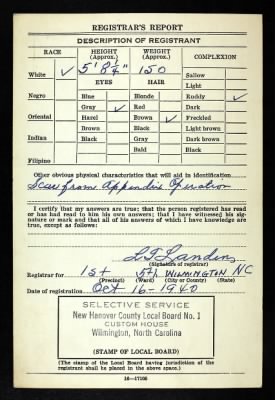 REGISTRAR'S REPORT
DESCRIPTION OF REGISTRANT
RACE
HEIGHT (Approx.)
WEIGHT (Approx.)
COMPLEXION
White ✓ 5' 8½" 150 Sallow
EYES HAIR Light
Negro Blue Blonde Ruddy ✓
Gray ✓ Red Dark
Oriental Hazel Brown ✓ Freckled
Brown Black Light brown
Indian Black Gray Dark brown
Bald Black
Filipino
Other obvious physical characteristics that will aid in identification
Scar from Appendix Operation
I certify that my answers are true; that the person registered has read
or has had read to him his own answers; that I have witnessed his sig-
nature or mark and that all of his answers of which I have knowledge
are true, except as follows:
(Signature of registrar)
Registrar for 1st 5th WILMINGTON NC
(Precinct) (Ward) (City or County) (State)
Date of registration Oct 16-1940
SELECTIVE SERVICE
New Hanover County Local Board No. 1
CUSTOM HOUSE
Wilmington, North Carolina
(STAMP OF LOCAL BOARD)
(The stamp of the Local Board having jurisdiction of the
registrant shall be placed in the above space.)
16-17105